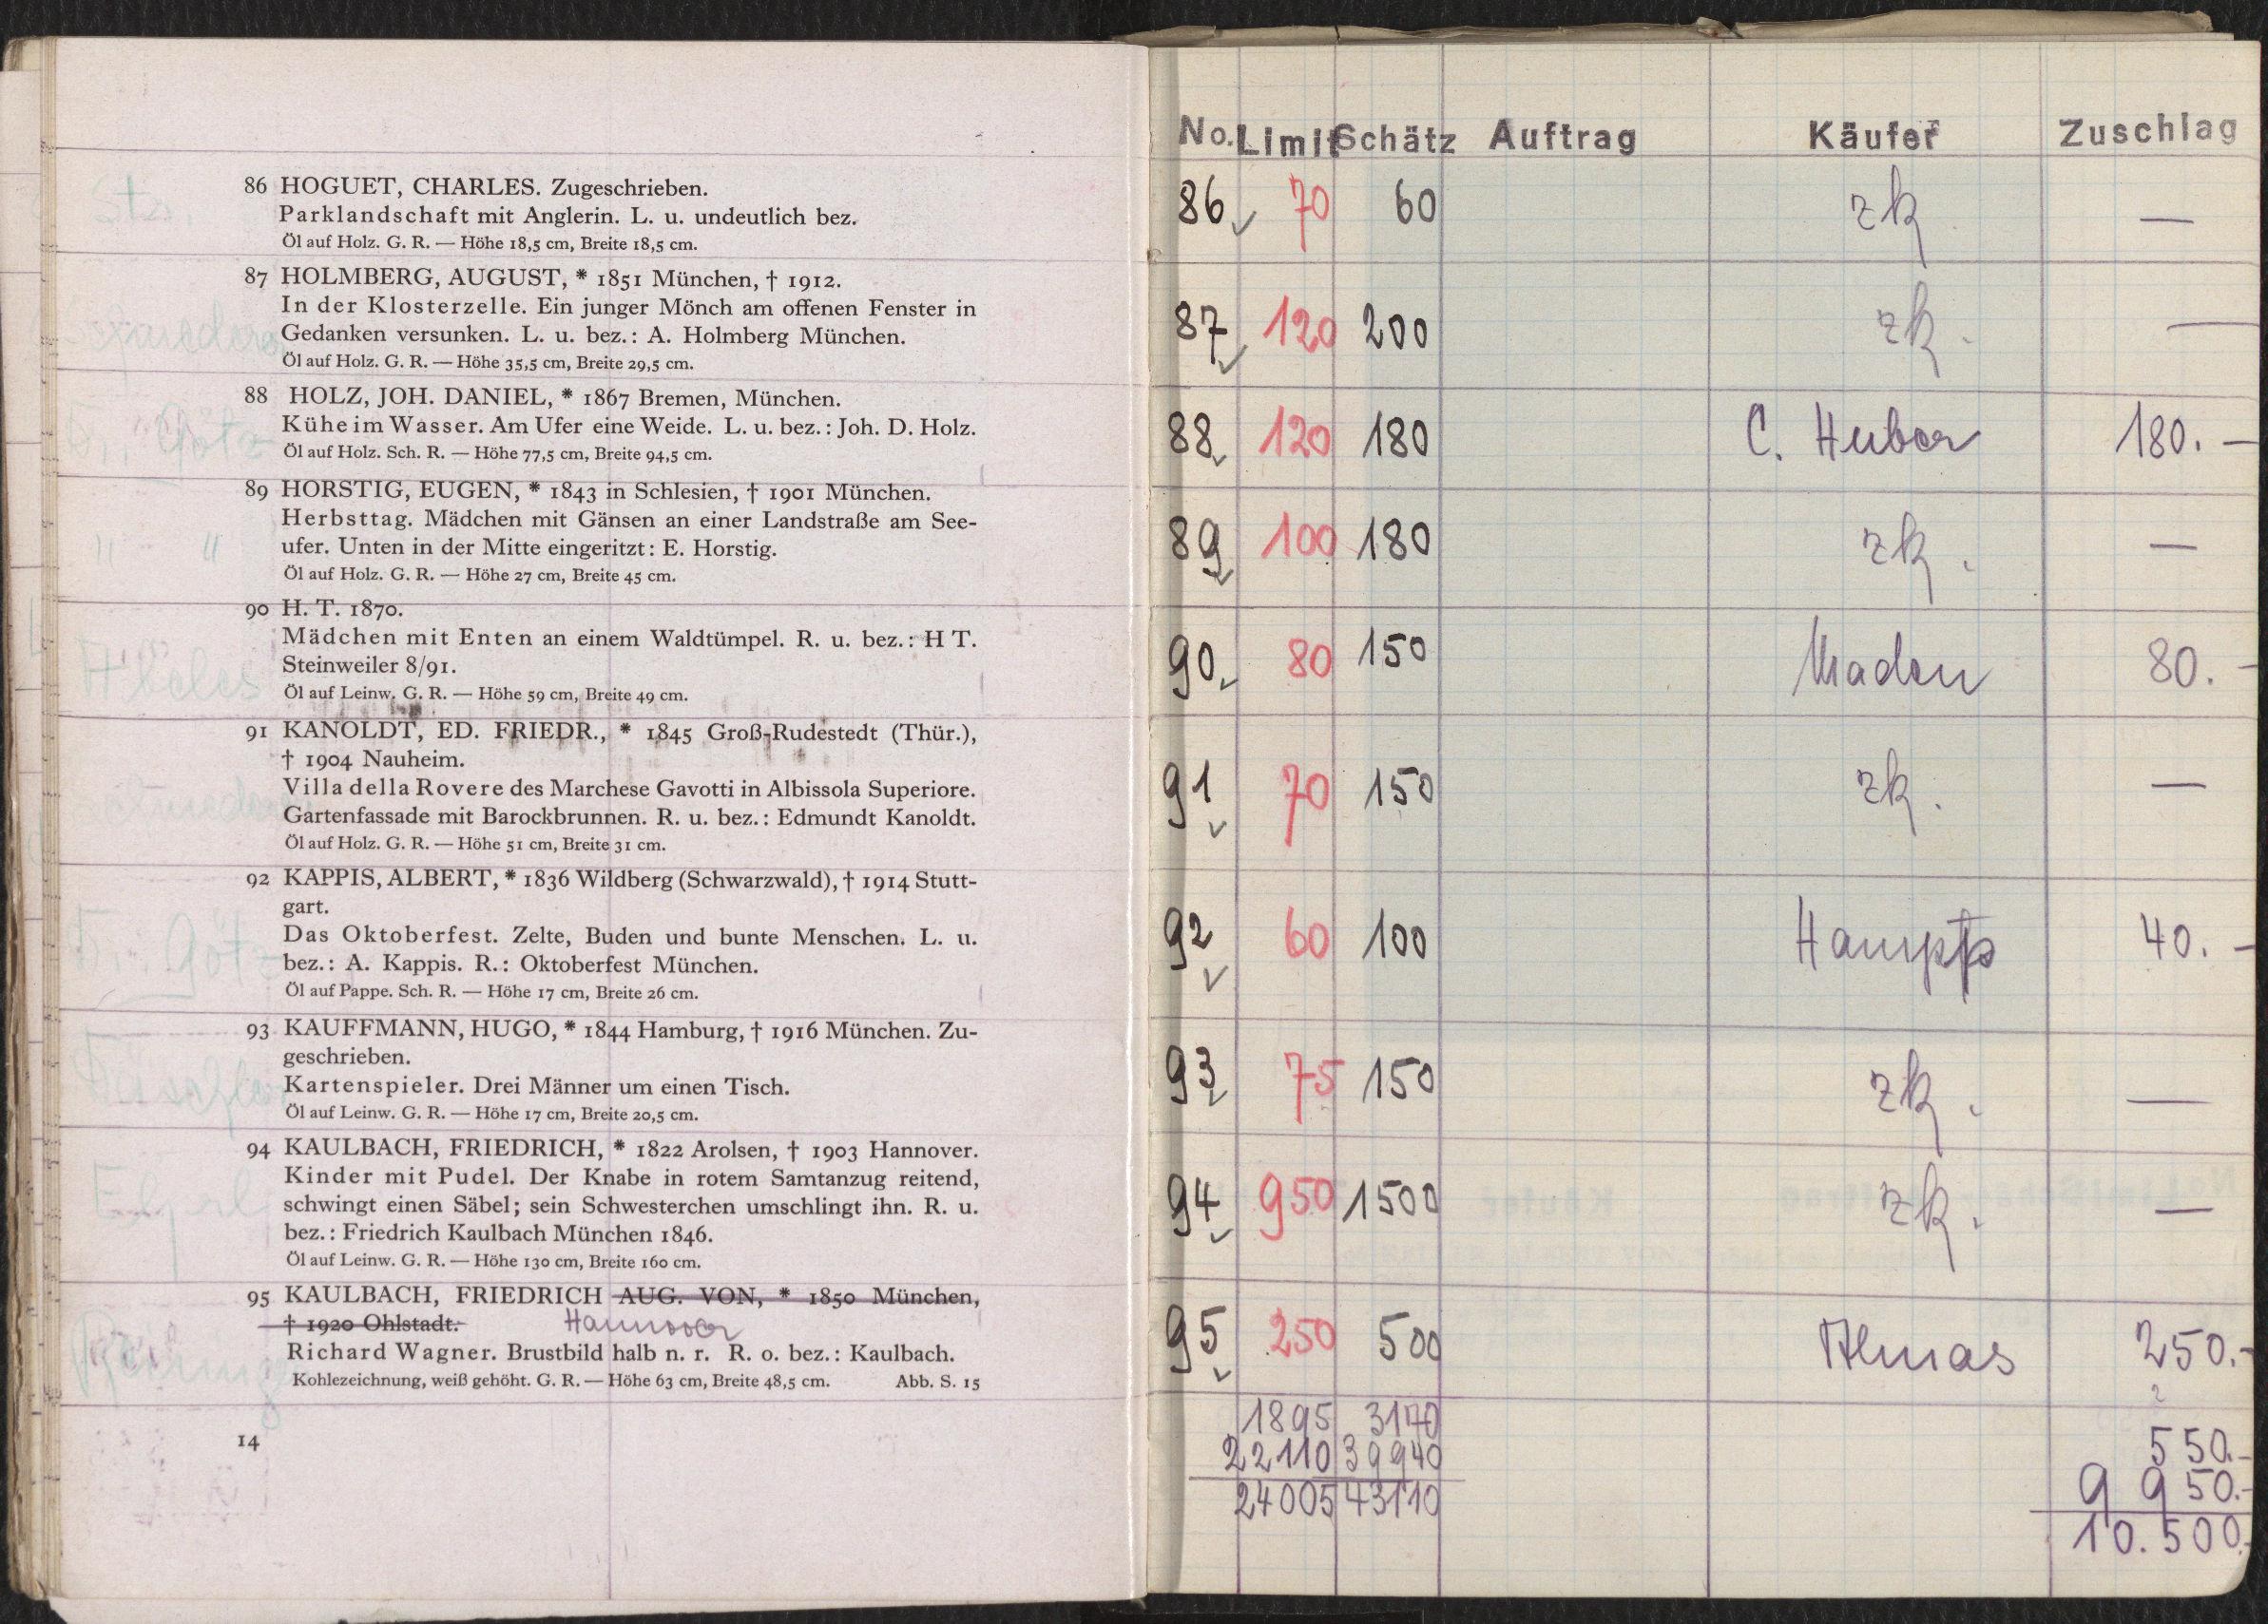 86 HOGUET, CHARLES. Zugeschrieben.
Parklandschaft mit Anglerin. L. u. undeutlich bez.
Öl auf Holz. G. R. — Höhe 18,5 cm, Breite 18,5 cm.
87 HOLMBERG, AUGUST, * 1851 München, † 1912.
In der Klosterzelle. Ein junger Mönch am offenen Fenster in
Gedanken versunken. L. u. bez.: A. Holmberg München.
Öl auf Holz. G. R. — Höhe 35,5 cm, Breite 29,5 cm.
88 HOLZ, JOH. DANIEL, * 1867 Bremen, München.
Kühe im Wasser. Am Ufer eine Weide. L. u. bez.: Joh. D. Holz.
Öl auf Holz. Sch. R. — Höhe 77,5 cm, Breite 94,5 cm.
89 HORSTIG, EUGEN, * 1843 in Schlesien, † 1901 München.
Herbsttag. Mädchen mit Gänsen an einer Landstraße am See-
ufer. Unten in der Mitte eingeritzt: E. Horstig.
Öl auf Holz. G. R. — Höhe 27 cm, Breite 45 cm.
90 H. T. 1870.
Mädchen mit Enten an einem Waldtümpel. R. u. bez.: H T.
Steinweiler 8/91.
Öl auf Leinw. G. R. — Höhe 59 cm, Breite 49 cm.
91 KANOLDT, ED. FRIEDR., * 1845 Groß-Rudestedt (Thür.),
† 1904 Nauheim.
Villa della Rovere des Marchese Gavotti in Albissola Superiore.
Gartenfassade mit Barockbrunnen. R. u. bez.: Edmundt Kanoldt.
Öl auf Holz. G. R. — Höhe 51 cm, Breite 31 cm.
92 KAPPIS, ALBERT, * 1836 Wildberg (Schwarzwald), † 1914 Stutt-
gart.
Das Oktoberfest. Zelte, Buden und bunte Menschen. L. u.
bez.: A. Kappis. R.: Oktoberfest München.
Öl auf Pappe. Sch. R. — Höhe 17 cm, Breite 26 cm.
93 KAUFFMANN, HUGO, * 1844 Hamburg, † 1916 München. Zu-
geschrieben.
Kartenspieler. Drei Männer um einen Tisch.
Öl auf Leinw. G. R. — Höhe 17 cm, Breite 20,5 cm.
94 KAULBACH, FRIEDRICH, * 1822 Arolsen, † 1903 Hannover.
Kinder mit Pudel. Der Knabe in rotem Samtanzug reitend,
schwingt einen Säbel; sein Schwesterchen umschlingt ihn. R. u.
bez.: Friedrich Kaulbach München 1846.
Öl auf Leinw. G. R. — Höhe 130 cm, Breite 160 cm.
95 KAULBACH, FRIEDRICH AUG. VON, * 1850 München,
† 1920 Ohlstadt. Hannover
Richard Wagner. Brustbild halb n. r. R. o. bez.: Kaulbach.
Kohlezeichnung, weiß gehöht. G. R. — Höhe 63 cm, Breite 48,5 cm. Abb. S. 15
14
No. Limit Schätz Auftrag Käufer Zuschlag
86 70 60 zk —
87 120 200 zk. —
88 120 180 C. Huber 180.—
89 100 180 zk. —
90 80 150 80.—
91 70 150 zk. —
92 60 100 40.—
93 75 150 zk. —
94 950 1500 zk. —
95 250 500 Almas 250.—
1895 3170 550.-
22110 39940 9 950.-
24005 43110 10.500.